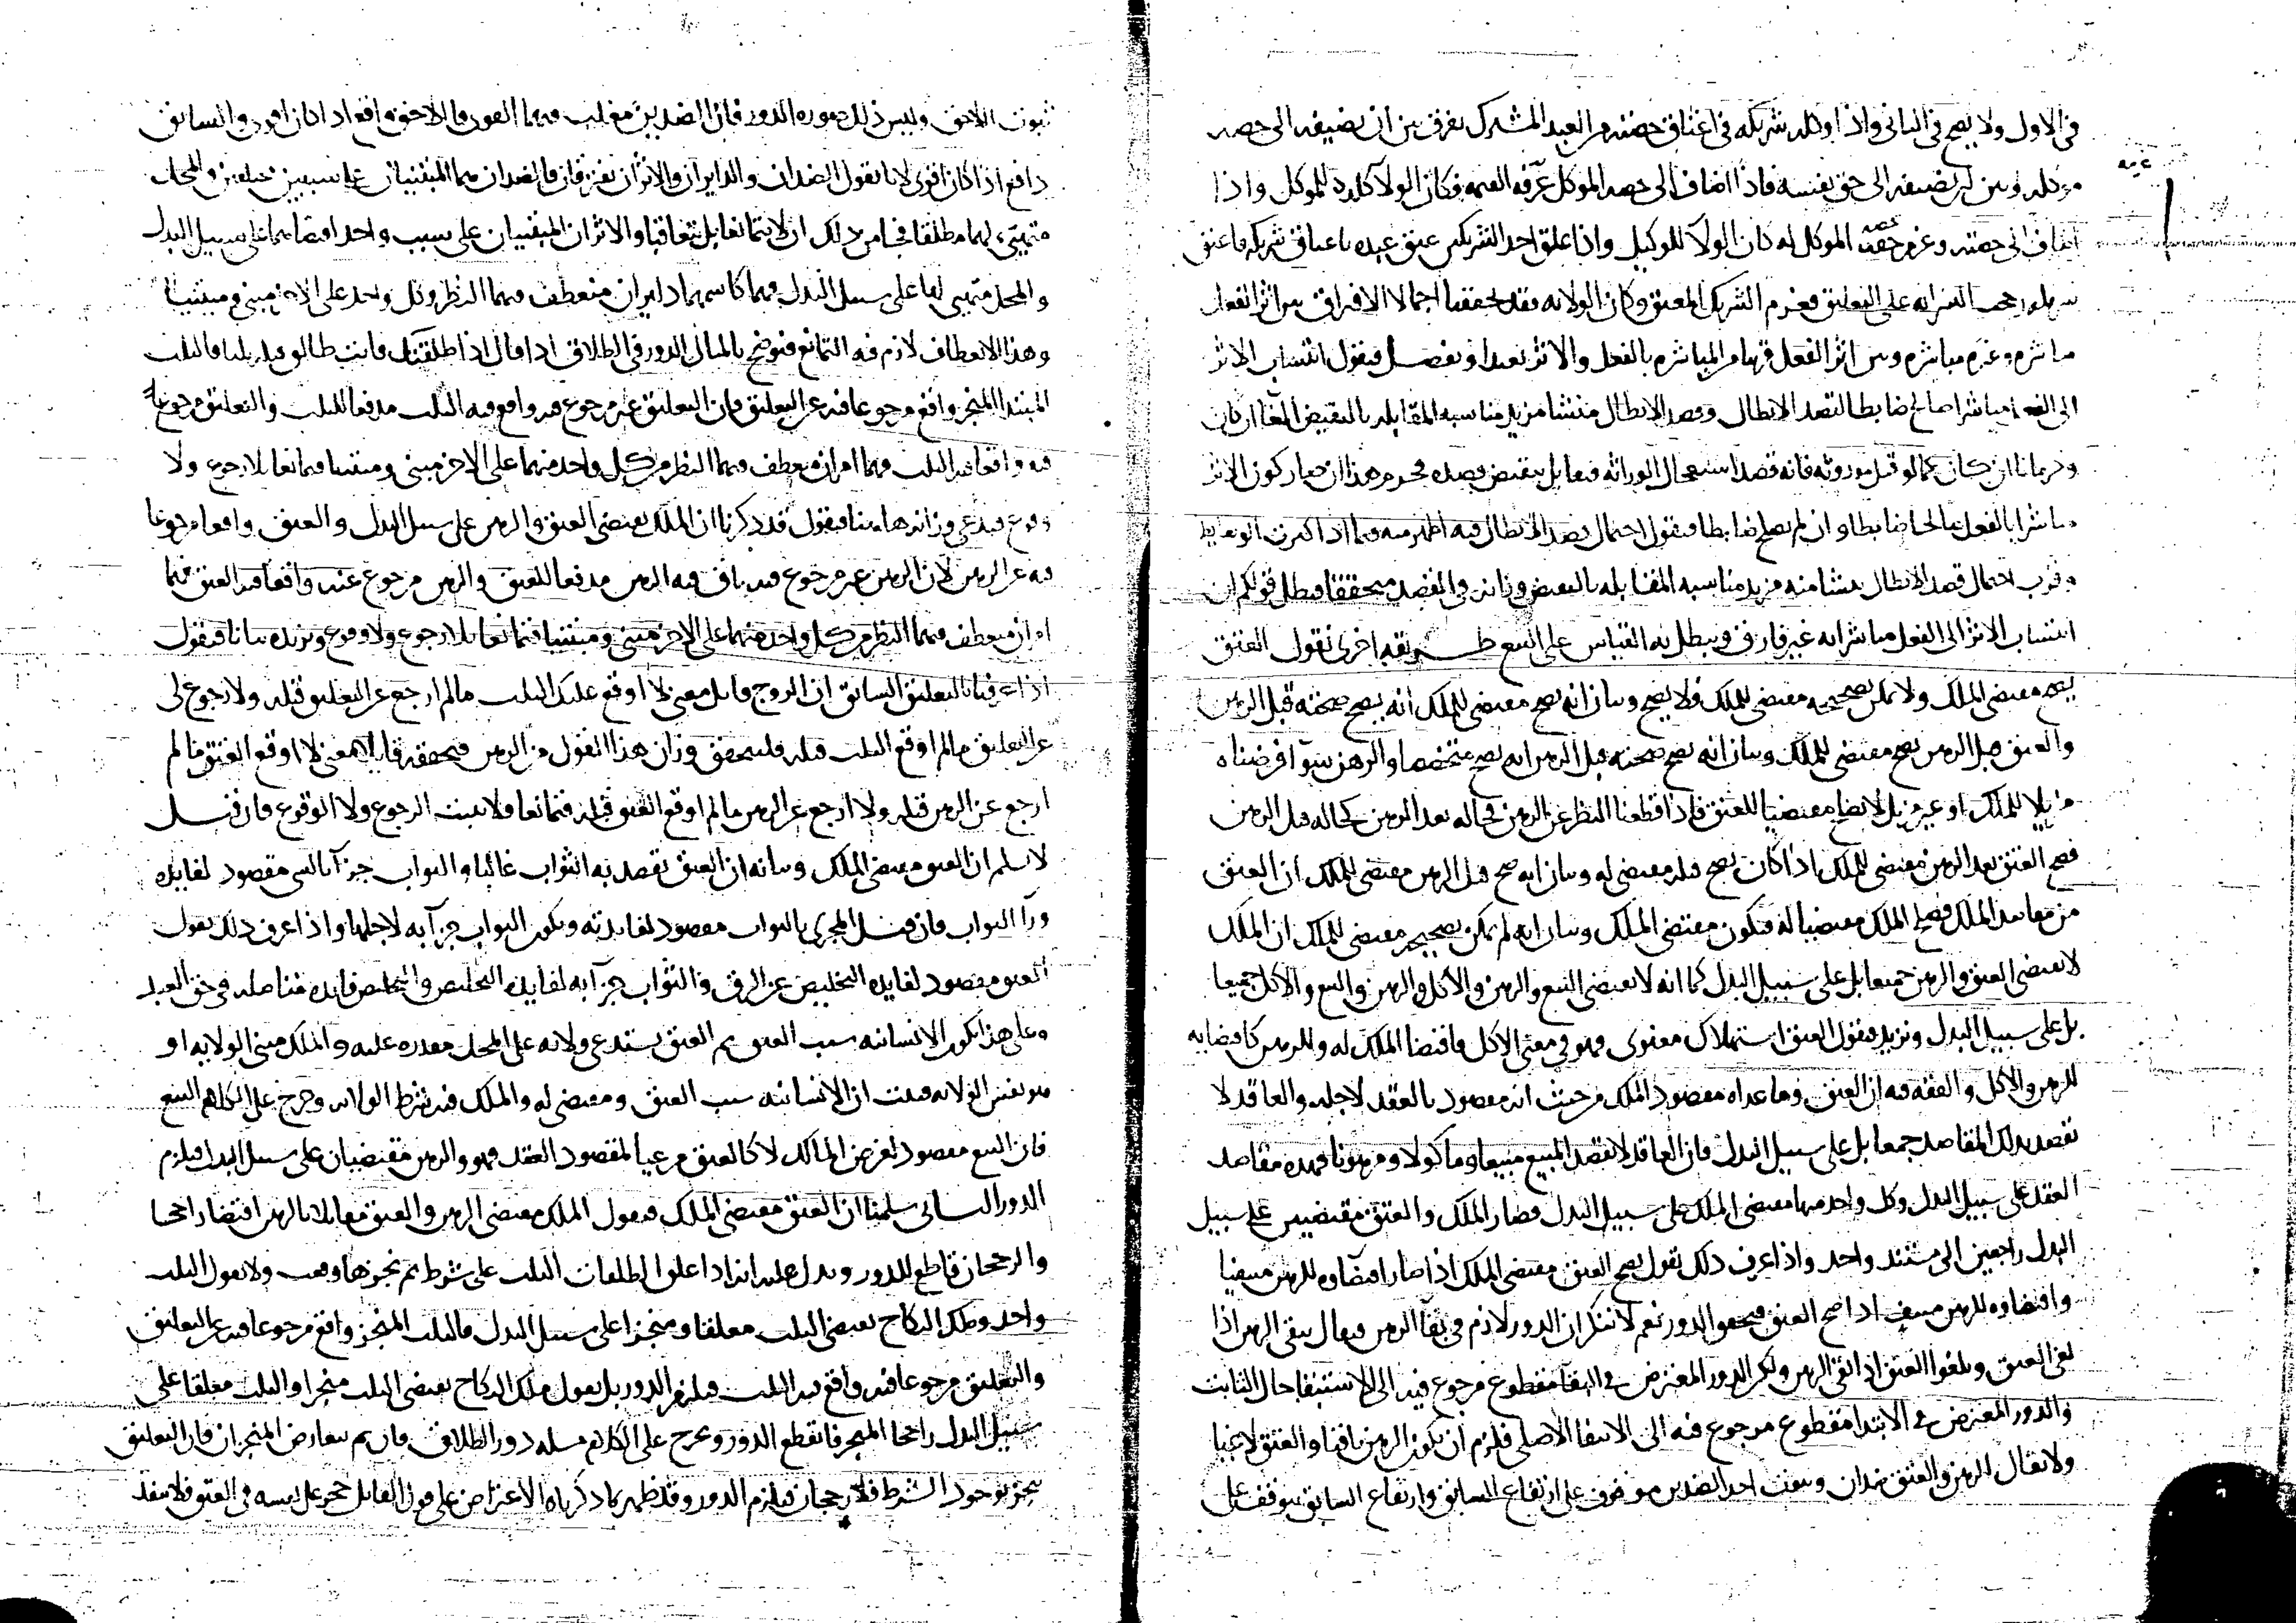 في الاول ولا يصح في الثاني واذا وكله شريكه في اعتاق حصته من العبد المشترك يفرق بين ان يضيفه الى حصه
موكله وبين ان يضيفه الى حق نفسه فاذا اضاف الى حصه الموكل غرمه القيمه فكان الولا كله للموكل واذا
اضاف الى حصته وغرم حصه الموكل له كان الولا للوكيل واذا علق احد الشريكين عتق عبده باعتاق شريكه فاعتق
شريكه رجحت السرايه على التعليق فغرم الشريك المعتق وكان الولا له فقد تحققنا اجمالا الافتراق بين اثر الفعل
مباشره وغيره مباشره وبين اثر الفعل المباشره بالفعل والاثر بعدا ونفصل فنقول انتساب الاثر
الى الفعل مباشرا صالح ضابطا لقصد الابطال وقصد الابطال منشا مزيد مناسبه المقابله بالنقيض الغا ان كان
وحرمانا ان كان كما لو قتل موروثه فانه قصد استعجال الوراثه فقابل بنقيض قصده فحرم هذا ان صار كون الاثر
مباشرا بالفعل صالحا ضابطا وان لم يصلح ضابطا فنقول احتمال قصد الابطال فيه اظهر منه فيما اذا
وقرب احتمال قصد الابطال منشا منه مزيد مناسبه المقابله بالنقيض وزانه في القصد متحققا فبطل قولكم ان
انتساب الاثر الى الفعل مباشرا به غير فارق ويبطل به القياس على البيع طريقه اخرى نقول العتق
يصح مقتضى للملك ولا يمكن تصحيحه مقتضى للملك فلا يصح وبيان انه يصح مقتضى للملك انه يصح صحته قبل الرهن
والعتق قبل الرهن يصح مقتضى للملك وبيان انه يصح صحته قبل الرهن انه يصح والرهن سوا فرضناه
مزيلا للملك او غير مزيل لا يصلح مقتضيا للعتق فاذا قطعنا النظر عن الرهن فحاله بعد الرهن كحاله قبل الرهن
فصح العتق بعد الرهن مقتضى للملك اذا كان يصح قبله مقتضى له وبيان انه صح قبل الرهن مقتضى للملك ان العتق
من مقاصد الملك فصلح الملك مقتضيا له فيكون مقتضى الملك وبيان انه لم يمكن تصحيحه مقتضى للملك ان الملك
لا يقتضى العتق والرهن جميعا بل على سبيل البدل كما انه لا يقتضى البيع والرهن والاكل والرهن والبيع والاكل جميعا
بل على سبيل البدل ونزيد فنقول العتق استهلاك معنوى فهو في معنى الاكل فاقتضا الملك له وللرهن كاقتضايه
للرهن والاكل والفقه فيه ان العتق وما عداه مقصود الملك من حيث انه مقصود بالعقد لاجله والعاقد لا
يقصد بذلك المقاصد جمعا بل على سبيل البدل فان العاقد لا يقصد المبيع مبيعا وماكولا ومرهونا فهذه مقاصد
العقد على سبيل البدل وكل واحد منها مقتضى الملك على سبيل البدل فصار الملك والعتق مقتضيين على سبيل
البدل راجعين الى مستند واحد واذا عرف ذلك نقول يصح العتق مقتضى الملك اذا صار اقتضاوه للرهن منتفيا
واقتضاوه للرهن منتف اذا صح العتق فيحقق الدور نعم لا ننكر ان الدور لازم في بقا الرهن فيقال يبقى الرهن اذا
لغى العتق ويلغوا العتق اذا بقى الرهن ولكن الدور المعترض في البقا مقطوع مرجوع فيه الى الاستبقا حال الثابت
والدور المعترض في الابتدا مقطوع مرجوع فيه الى الانتفا الاصلى فلزم ان يكون الرهن باقيا والعتق لاغيا
ولا يقال للرهن والعتق ضدان وثبوت احد الضدين موقوف على ارتفاع السابق وارتفاع السابق يتوقف على
ثبوت اللاحق وليس ذلك صوره الدور فان الضدين مغلب فيهما القوى فاللاحق واقع اذا كان اقوى والسابق
دافع اذا كان اقوى لانا نقول الضدان والدايران والاثران يفترقان فالضدان هما المبتنيان على سببين مختلفين والمحل
متهيئ لهما مطلقا فجا من ذلك ان لا يتمانعا بل يتعاقبا والاثران المبتنيان على سبب واحد اقتضاهما على سبيل البدل
والمحل متهيئ لهما على سبيل البدل فهما كاسمهما دايران منعطف فيهما النظر وكل واحد على الاخر مبنى ومبتنيا
وهذا الانعطاف لازم فيه التمانع فنوضح بالمثال الدور في الطلاق اذا قال اذا طلقتك فانت طالق قبله ثلثا فالثلث
المبتدا المنجز واقع مرجوعا فيه عن التعليق فان التعليق غير مرجوع فيه واقع فيه الثلث مدفعا للثلث والتعليق مرجوعا
فيه واقعا قبله الثلث فهما امران منعطف فيهما النظر من كل واحد منهما على الاخر مبنى ومبتنيا فتمانعا فلا رجوع ولا
وقوع فندعى وزانه هاهنا فنقول قد ذكرنا ان الملك يقتضى العتق والرهن على سبيل البدل والعتق واقعا مرجوعا
فيه عن الرهن لان الرهن غير مرجوع فيه باق فيه الرهن مدفعا للعتق والرهن مرجوع عنه واقعا فيه العتق فهما
امران منعطف فيهما النظر من كل واحد منهما على الاخر مبنى ومبتنيا فتمانعا فلا رجوع ولا وقوع ونزيده بيانا فنقول
اذا عرفنا التعليق السابق ان الزوج قايل معنى لا اوقع عليك الثلث ما لم ارجع عن التعليق قبله ولا رجوع لى
عن التعليق ما لم اوقع الثلث قبله فليتحقق وزان هذا القول من الرهن فيحققه قايلا معنى لا اوقع العتق ما لم
ارجع عن الرهن قبله ولا ارجع عن الرهن ما لم اوقع العتق قبله فتمانعا ولا يثبت الرجوع ولا الوقوع فان قيل
لا نسلم ان العتق مقتضى الملك وبيانه ان العتق يقصد به الثواب غالبا والثواب جزا الشى مقصود لفايده
ورا الثواب فان قيل المجرى بالثواب مقصود لفايدته ويكون الثواب جزا به لاجلها واذا عرف ذلك نقول
العتق مقصود لفايده التخليص عن الرق والثواب جزا به لفايده التخليص والتخليص فايده متاصله في حق العبد
وعلى هذا يكون الانسانيه سبب العتق ثم العتق يستدعى ولايه على المحل مقدره عليه والملك مبنى الولايه او
هو نفس الولايه فثبت ان الانسانيه سبب العتق ومقتضى له والملك فيه شرط الولايه وخرج على الكلام البيع
فان البيع مقصود لغرض المالك لا كالعتق مرعيا لمقصود العقد فهو والرهن مقتضيان على سبيل البدل فيلزم
الدور الثانى سلمنا ان العتق مقتضى الملك فنقول الملك مقتضى الرهن والعتق مقابلا بالرهن اقتضا راجحا
والرجحان قاطع للدور ويدل عليه انه اذا علق الطلقات الثلث على شرط ثم نجزها وقعت ولا نقول الثلث
واحد وملك النكاح يقتضى الثلث معلقا ومنجزا على سبيل البدل فالثلث المنجز واقع مرجوعا فيه عن التعليق
والتعليق مرجوعا فيه واقع فيه الثلث فيلزم الدور بل نقول ملك النكاح يقتضى الثلث منجزا والثلث معلقا على
سبيل البدل راجحا المنجز فانقطع الدور وخرج على الكلام مسله دور الطلاق فان ثم تعارض المنجزان فان التعليق
ينجز بوجود الشرط فلا رجحان فيلزم الدور وقد ظهر بما ذكرناه الاعتراض على قول القايل حجر على نفسه في العتق فلا ينفذ